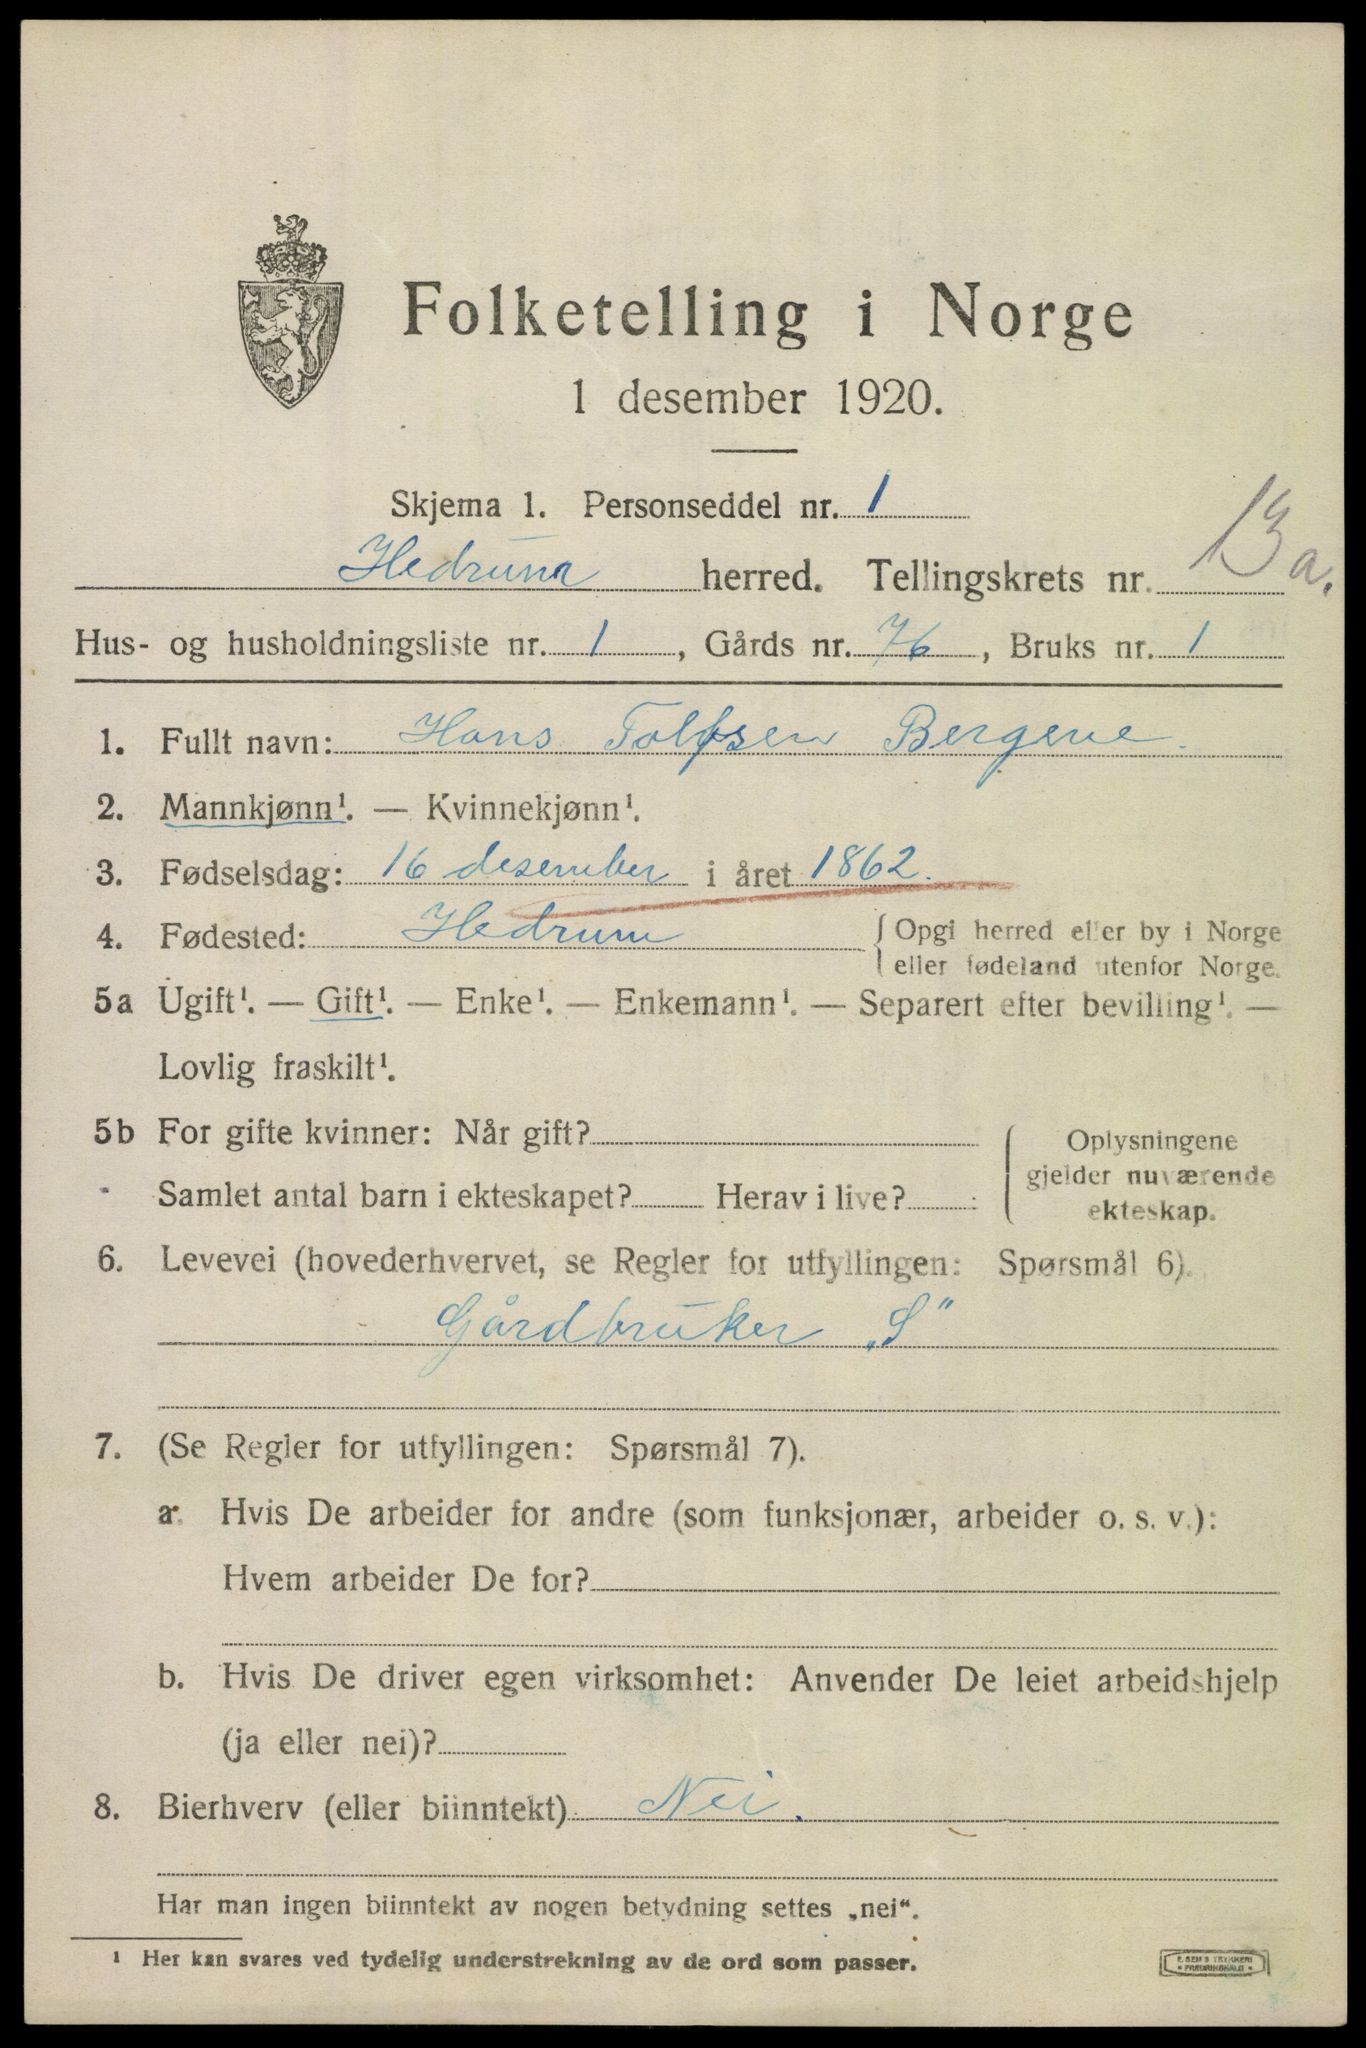 Folketelling i Norge
1 desember 1920.
Skjema 1. Personseddel nr. 1
Hedrum herred. Tellingskrets nr. 13 a.
Hus- og husholdningsliste nr. 1, Gårds nr. 76, Bruks nr. 1
1. Fullt navn: Hans Tolfsen Bergene.
2. Mannkjønn¹. — Kvinnekjønn¹.
3. Fødselsdag: 16 desember i året 1862.
4. Fødested: Hedrum { Opgi herred eller by i Norge
eller fødeland utenfor Norge.
5a Ugift¹. — Gift¹. — Enke¹. — Enkemann¹. — Separert efter bevilling¹. —
Lovlig fraskilt¹.
5b For gifte kvinner: Når gift?
Samlet antal barn i ekteskapet? Herav i live?
{ Oplysningene
gjelder nuværende
ekteskap.
6. Levevei (hovederhvervet, se Regler for utfyllingen: Spørsmål 6).
Gårdbruker „S“
7. (Se Regler for utfyllingen: Spørsmål 7).
a. Hvis De arbeider for andre (som funksjonær, arbeider o. s. v.):
Hvem arbeider De for?
b. Hvis De driver egen virksomhet: Anvender De leiet arbeidshjelp
(ja eller nei)?
8. Bierhverv (eller biinntekt) Nei.
Har man ingen biinntekt av nogen betydning settes „nei“.
¹ Her kan svares ved tydelig understrekning av de ord som passer.
TRYKKERI
FREDRIKSHALD